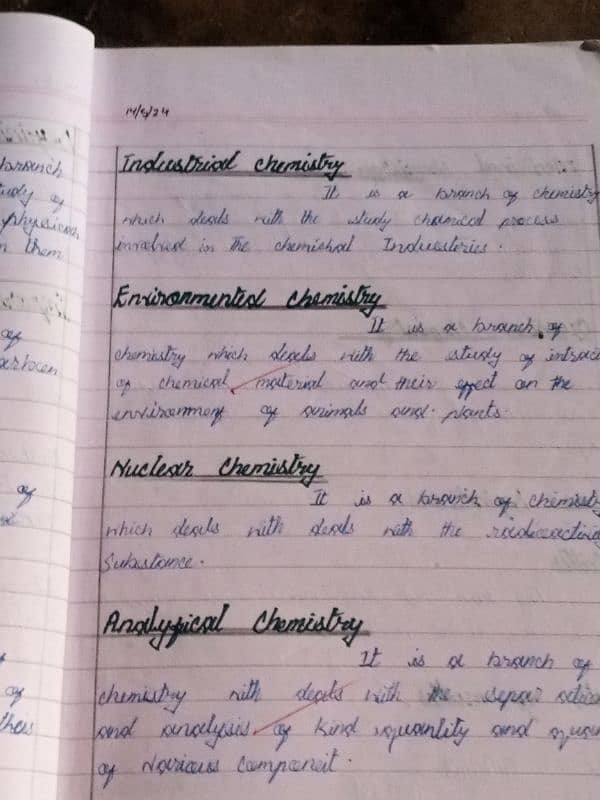 14/5/24
Industrial chemistry
It is a branch of chemistry
which deals with the study chemical process
involved in the chemichal Industeries.
Environmented chemistry
It is a branch of
chemistry which deals with the study of intrac
of chemical material and their effect on the
environment of animals and plants.
Nuclear Chemistry
It is a branch of chemist
which deals with deals with the
Substance.
Analytical Chemistry
It is a branch of
chemistry with deals with the separ
and analysis of kind and
of Various Component.
branch
physical
them
of
of
of